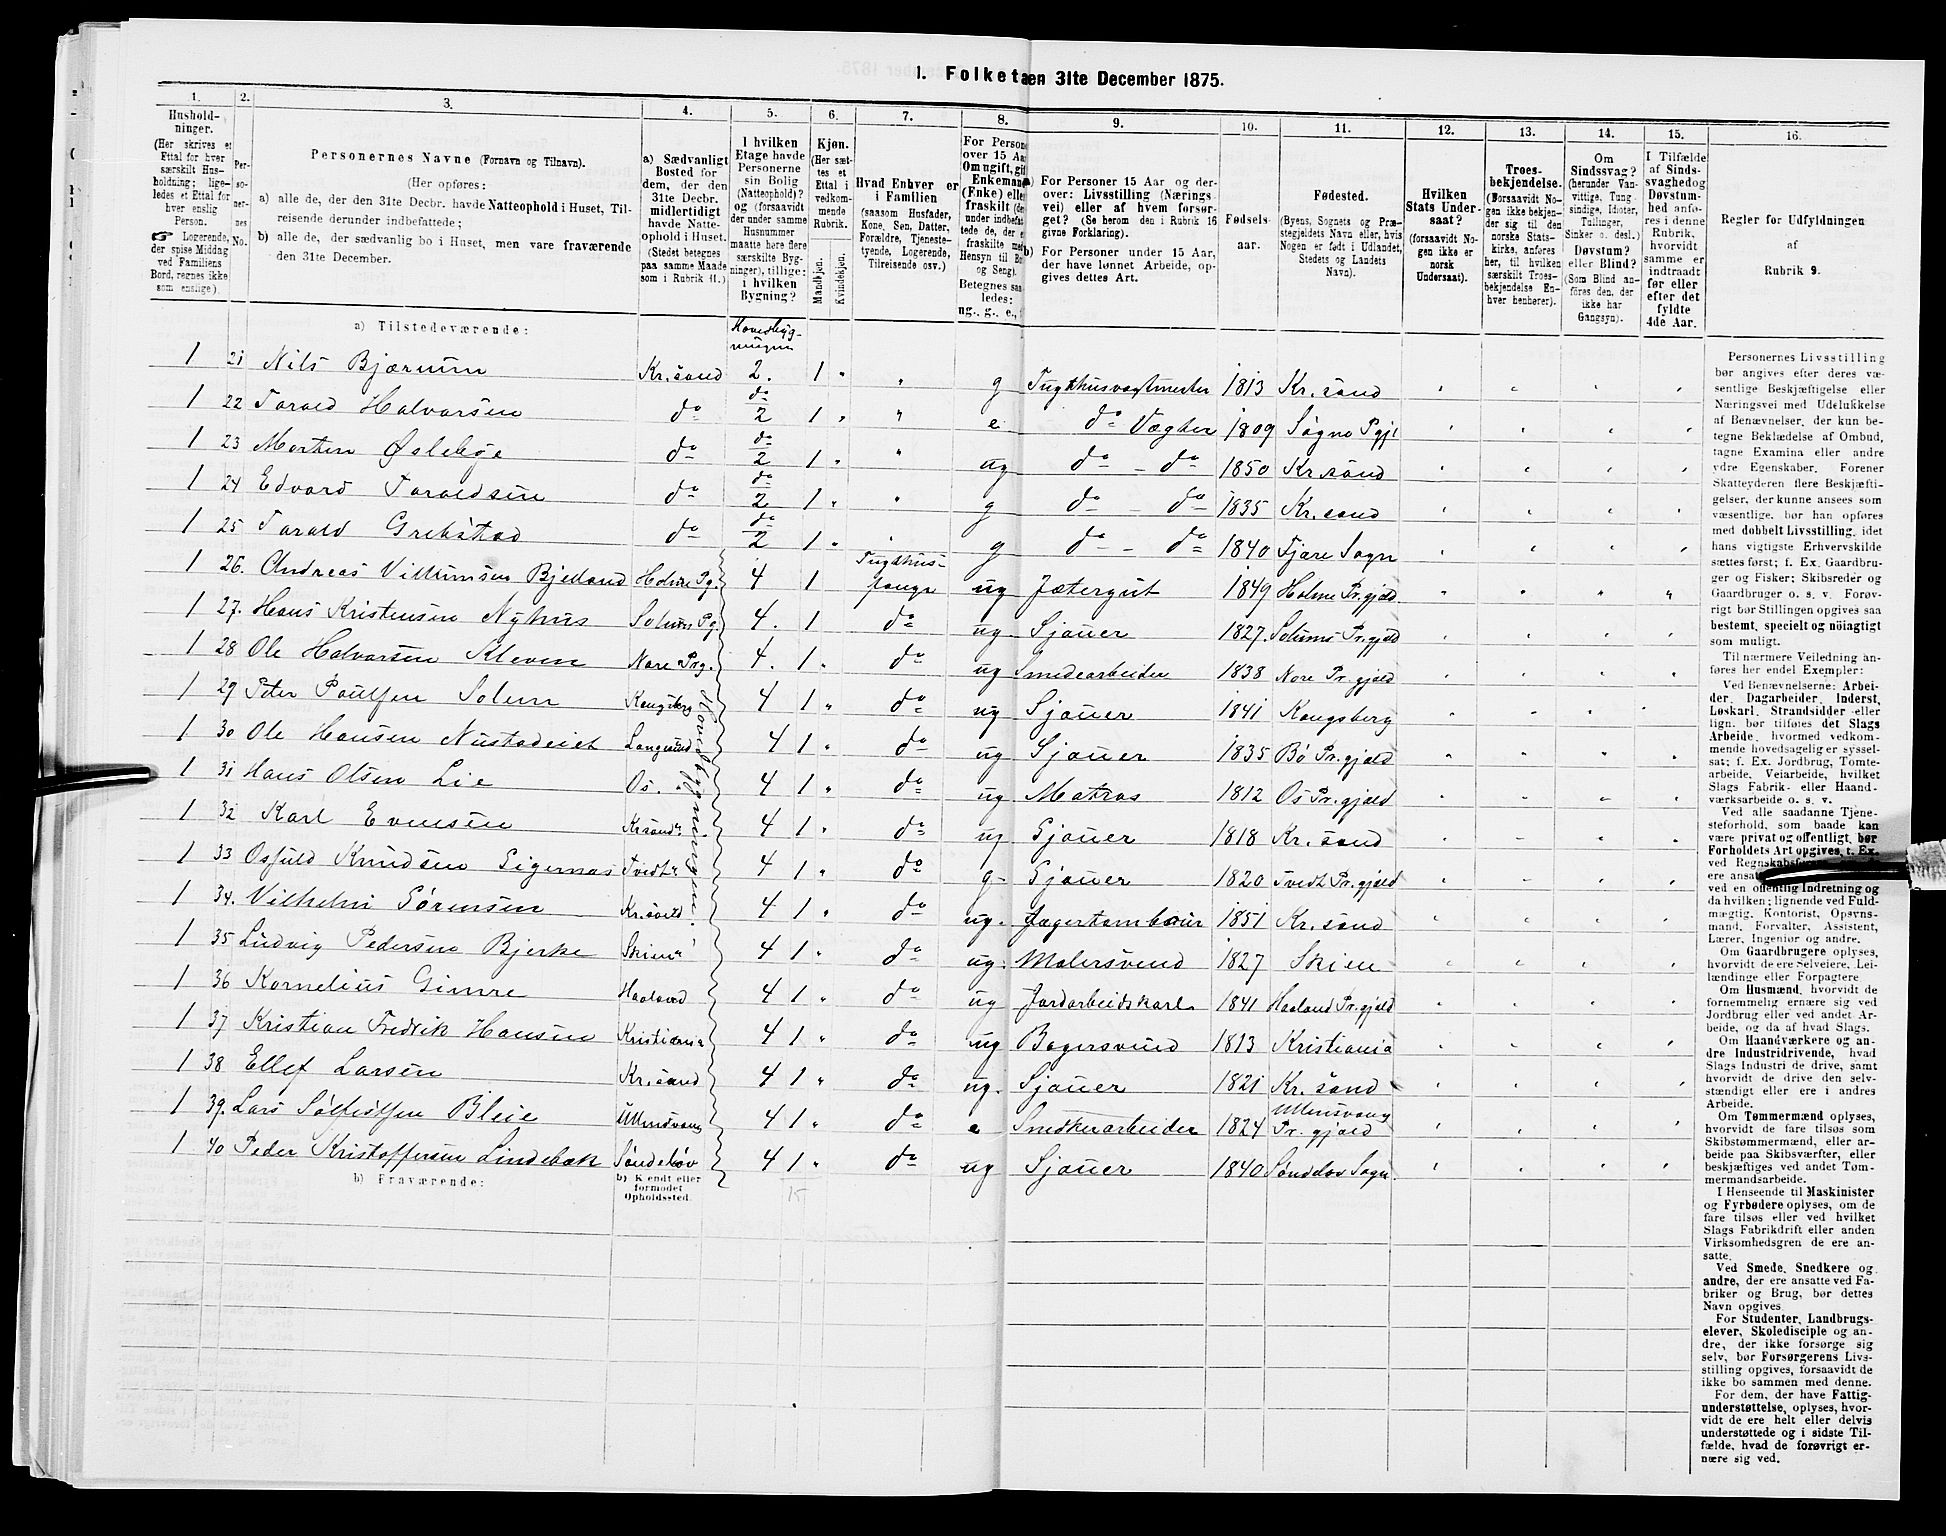 1. Folketæn 31te December 1875.
1. 2. 3. 4. 5. 6. 7. 8. 9. 10. 11. 12. 13. 14. 15. 16.
Hushold-
ninger.
(Her skrives et
Ettal for hver
særskilt Hus-
holdning; lige-
ledes et Ettal for
hver enslig
Person.
☞ Logerende,
der spise Middag
ved Familiens
Bord, regnes ikke
som enslige).
Per-
so-
ner-
nes
No.
Personernes Navne (Fornavn og Tilnavn).
(Her opføres:
a) alle de, der den 31te Decbr. havde Natteophold i Huset, Til-
reisende derunder indbefattede;
b) alle de, der sædvanlig bo i Huset, men vare fraværende
den 31te December.
a) Sædvanligt
Bosted for
dem, der den
31te Decbr.
midlertidigt
havde Natte-
ophold i Huset.
(Stedet betegnes
paa samme Maade
som i Rubrik 11.)
I hvilken
Etage havde
Personerne
sin Bolig
(Natteophold)?
og (forsaavidt
der under samme
Husnummer
maatte høre flere
særskilte Byg-
ninger), tillige:
i hvilken
Bygning?
Kjøn.
(Her sæt-
tes et
Ettal i
vedkom-
mende
Rubrik.
Mandkjøn.
Kvindekjøn.
Hvad Enhver er
i Familien
(saasom Husfader,
Kone, Søn, Datter,
Forældre, Tjeneste-
tyende, Logerende,
Tilreisende osv.)
For Persone
over 15 Aar
Om ugift, gif
Enkemand
(Enke) eller
fraskilt (de
under indbefat-
tede de, der e
fraskilte med
Hensyn til Bo
og Seng).
Betegnes saa-
ledes:
ug., g., e., f
a) For Personer 15 Aar og der-
over: Livsstilling (Nærings
vei) eller af hvem forsør-
get? (Se herom den i Rubrik 16
givne Forklaring).
b) For Personer under 15 Aar,
der have lønnet Arbeide, op-
gives dettes Art.
Fødsels-
aar.
Fødested.
(Byens, Sognets og Præ-
stegjeldets Navn eller, hvis
Nogen er født i Udlandet,
Stedets og Landets
Navn).
Hvilken
Stats Under-
saat?
(forsaavidt No-
gen ikke er
norsk
Undersaat).
Troes-
bekjendelse.
(Forsaavidt No-
gen ikke bekjen-
der sig til den
norske Stats-
kirke, anføres
her, til hvilken
særskilt Troes-
bekjendelse En-
hver henhører).
Om
Sindssvag?
(herunder Van-
vittige, Tung
sindige, Idioter,
Tullinger,
Sinker o. desl.)
Døvstum?
eller Blind?
(Som Blind an-
føres den, der
ikke har
Gangsyn).
I Tilfælde
af Sinds-
svaghed og
Døvstum-
hed anfø-
res i denne
Rubrik,
hvorvidt
samme er
indtraadt
før eller
efter det
fyldte
4de Aar.
Regler for Udfyldningen
af
Rubrik 9.
a) Tilstedeværende: Hovedbyg-
ningen
1 21 Nils Bjørnum Kr.sand 2. 1 " " g Tugthusvagtmester 1813 Kr. sand
1 22 Tarald Halvorsen do do 2 1 " " e do Vægter 1809 Søgne Pgjl
1 23 Morten Øslebøe do do 2 1 " " ug do - do 1850 Kr.sand
1 24 Edvard Taraldsen do do 2 1 " " g do - do 1835 Kr. sand
1 25 Tarald Grebstad do do 2 1 " " g do - do 1840 Fjære Sogn
1 26. Andreas Villumsen Bjelland Holme Pg. 4 1 Tugthus-
fange ug Jætergut 1849 Holme Pr.gjæld
1 27. Hans Kristensen Nyhus Solums Pg. 4. 1 do ug Sjauer 1827. Solums Pr.gjæld
1 28 Ole Halvorsen Kleven Nore Prg. 4. 1 " do ug Smedearbeider 1838 Nore Pr.gjæld
1 29 Peter Paulsen Solem Kongsberg 4 1 " do ug Sjauer 1841 Kongsberg
1 30 Ole Hansen Nustadeiet Langesund 4 1 " do ug Sjauer 1835 Bø Pr.gjæld
1 31 Hans Olsen Lie Os. " 4 1 " do ug Matros 1812 Os Pr.gjæld
1 32 Karl Evensen Kr.sand 4 1 " do ug Sjauer 1818 Kr. sand
1 33 Osfuld Knudsen Sigernæs Tvedt 4 1 " do g- Sjauer 1820 Tvedt Pr.gjæld
1 34. Vilhelm Sørensen Kr.sand 4 1 " do ug. Jægertambour 1851 Kr. sand
1 35 Ludvig Pedersen Bjerke Skien 4 1 " do ug. Malersvend 1827 Skien
1 36 Kornelius Gimre Haaland 4 1 " do ug Jordarbeidskarl 1841 Haaland Pr.gjæld
1 37 Kristian Fredrik Hansen Kristiania 4 1 " do ug Bagersvend 1813 Kristiania
1 38 Ellef Larsen Kr.sand 4 1 " do ug. Sjauer 1821 Kr. sand
1 39. Lars Solfestsen Bleie Ullensvang 4 1 " do e Snedkerarbeider 1824 Ullensvang
Pr. gjæld
1 40 Peder Kristoffersen Lindebæk Søndeløv 4 1 " do ug Sjauer 1840 Sønddløv Sogn
Hovedbygningen.
b) Fraværende: b) Kjendt eller
formodet
Opholdssted. 15
Personernes Livsstilling
bør angives efter deres væ-
sentlige Beskjæftigelse eller
Næringsvei med Udelukkelse
af Benævnelser, der kun be-
tegne Beklædelse af Ombud,
tagne Examina eller andre
ydre Egenskaber. Forener
Skatteyderen flere Beskjæfti-
gelser, der kunne ansees som
væsentlige, bør han opføres
med dobbelt Livsstilling, idet
hans vigtigste Erhvervskilde
sættes først; f. Ex. Gaardbru-
ger og Fisker; Skibsreder og
Gaardbruger o. s. v. Forøv-
rigt bør Stillingen opgives saa
bestemt, specielt og nöiagtigt
som muligt.
Til nærmere Veiledning an-
føres her endel Exempler:
Ved Benævnelserne: Arbei-
der, Dagarbeider, Inderst,
Løskarl, Strandsidder eller
lign. bør tilføies det Slags
Arbeide, hvormed vedkom-
mende hovedsagelig er syssel-
sat; f. Ex. Jordbrug, Tomte-
arbeide, Veiarbeide, hvilket
Slags Fabrik- eller Haand-
værksarbeide o. s. v.
Ved alle saadanne Tjene-
steforhold, som baade kan
være privat og offentligt, bør
Forholdets Art opgives, t. Ex.
ved Regnskabsfø
ere ansat
ved en offentlig Indretning og
da hvilken; lignende ved Fuld-
mægtig, Kontorist, Opsyns-
mand, Forvalter, Assistent,
Lærer, Ingeniør og andre.
Om Gaardbrugere oplyses,
hvorvidt de ere Selveiere, Lei-
lændinge eller Forpagtere
Om Husmænd, hvorvidt de
fornemmelig ernære sig ved
Jordbrug eller ved andet Ar-
beide, og da af hvad Slags.
Om Haandværkere og an-
dre Industridrivende, hvad
Slags Industri de drive, samt
hvorvidt de drive den selv-
stændigt eller ere i andres
Arbeide.
Om Tømmermænd oplyses,
hvorvidt de fare tilsøs som
Skibstømmermænd, eller ar-
beide paa Skibsværfter, eller
beskjæftiges ved andet Tøm-
mermandsarbeide.
I Henseende til Maskinister
og Fyrbødere oplyses, om de
fare tilsøs eller ved hvilket
Slags Fabrikdrift eller anden
Virksomhedsgren de ere an-
satte.
Ved Smede, Snedkere og
andre, der ere ansatte ved Fa-
briker og Brug, bør dettes
Navn opgives
For Studenter, Landbrugs-
elever, Skoledisciple og an-
dre, der ikke forsørge sig
selv, bør Forsørgerens Livs-
stilling opgives, forsaavidt de
ikke bo sammen med denne.
For dem, der have Fattig-
understøttelse, oplyses, hvor-
vidt de ere helt eller delvis
understøttede og i sidste Til-
fælde, hvad de forøvrigt er-
nære sig ved.